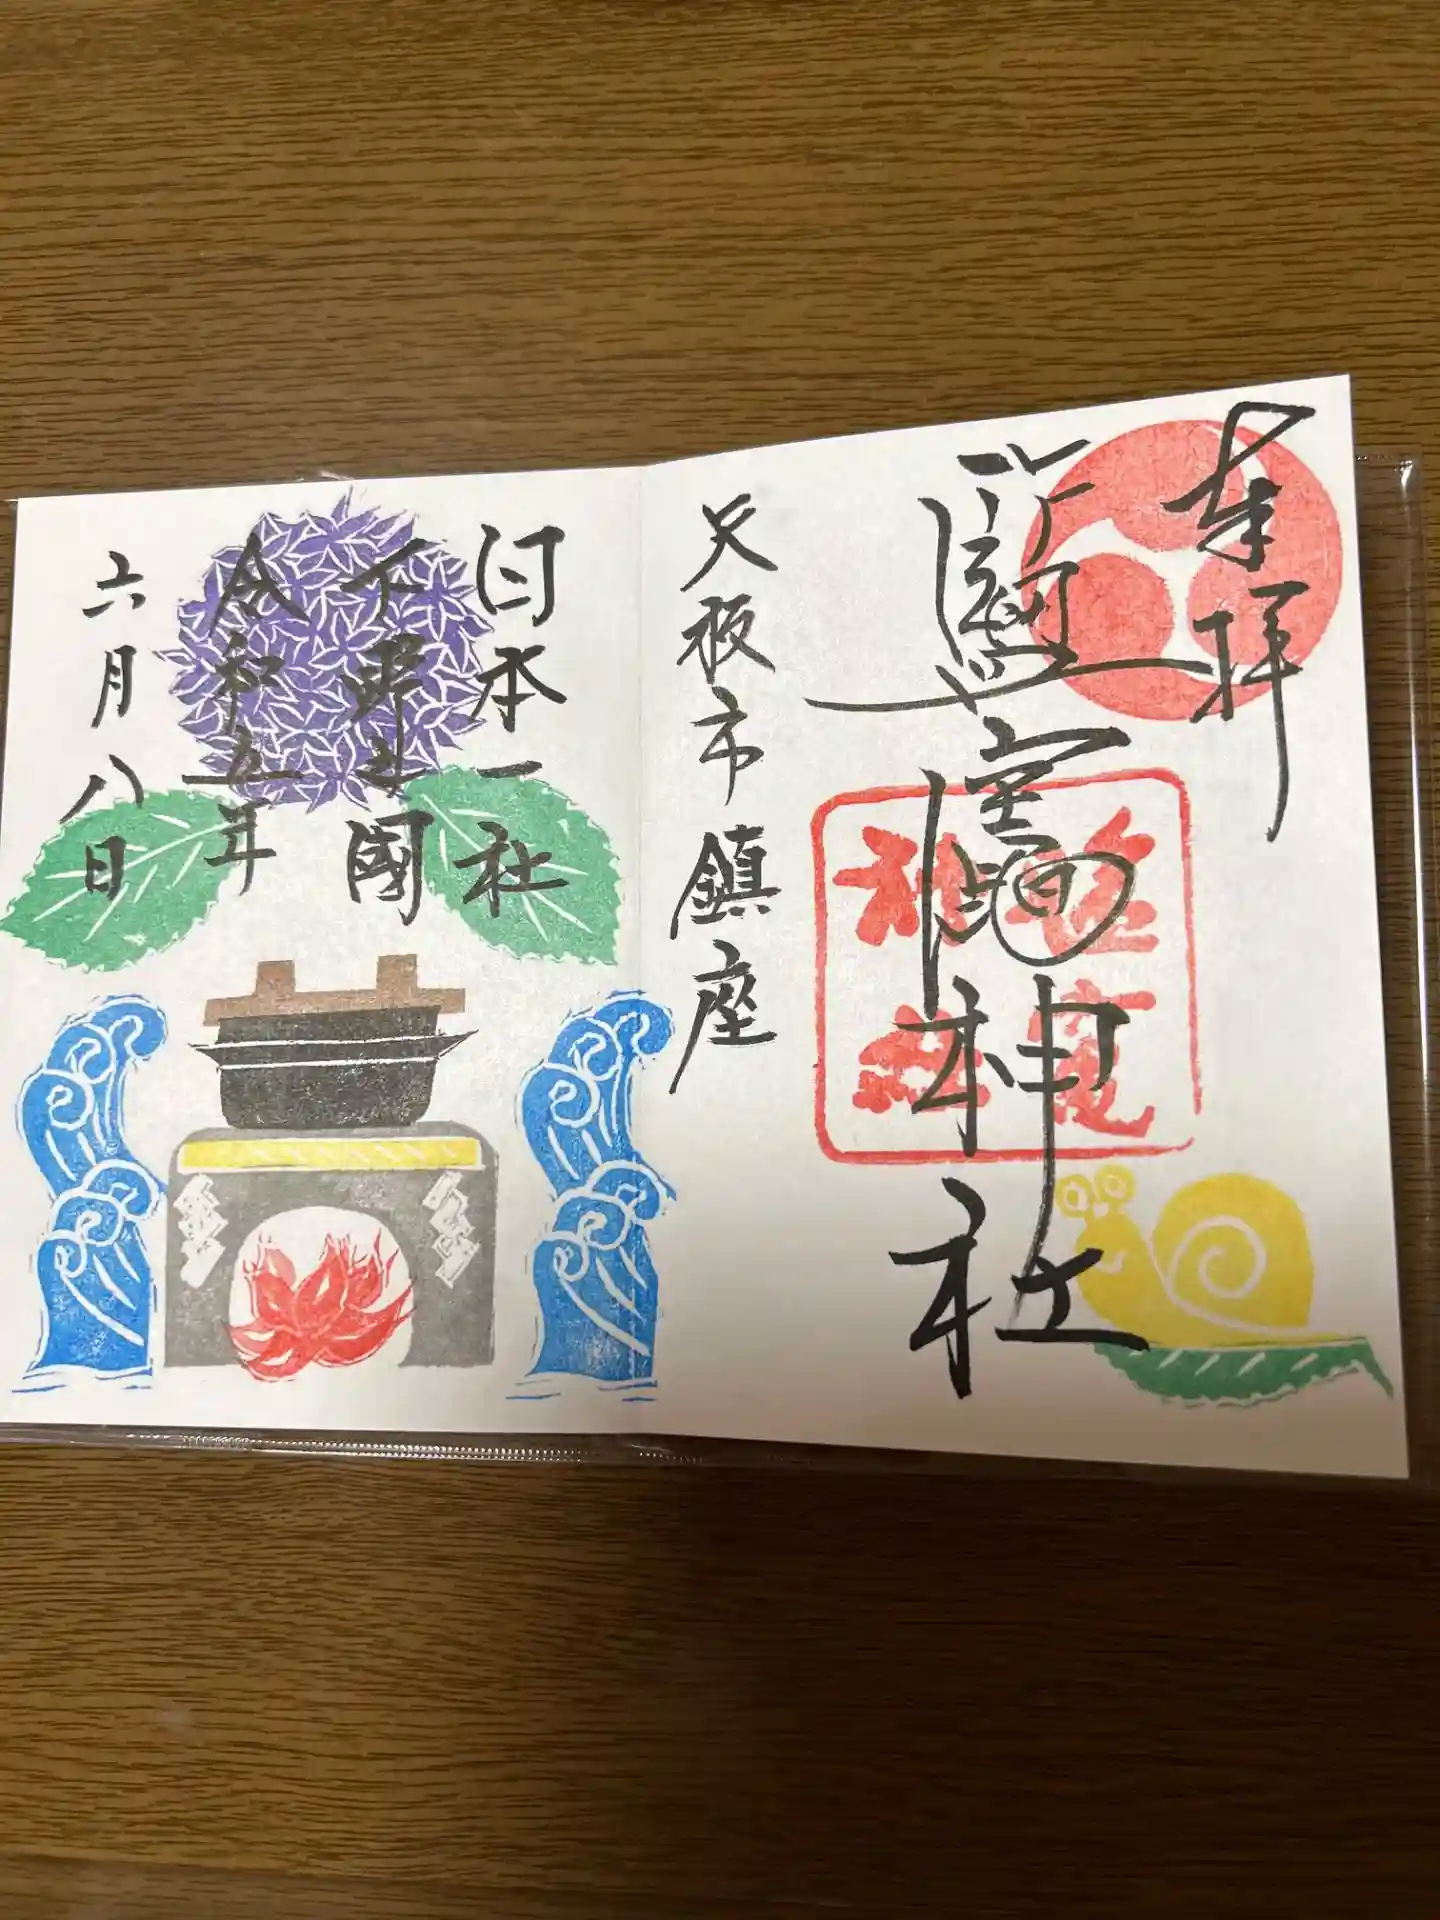 奉拝
鹽竈神社
矢板市鎮座
日本一社
下野之國
令和五年
六月八日